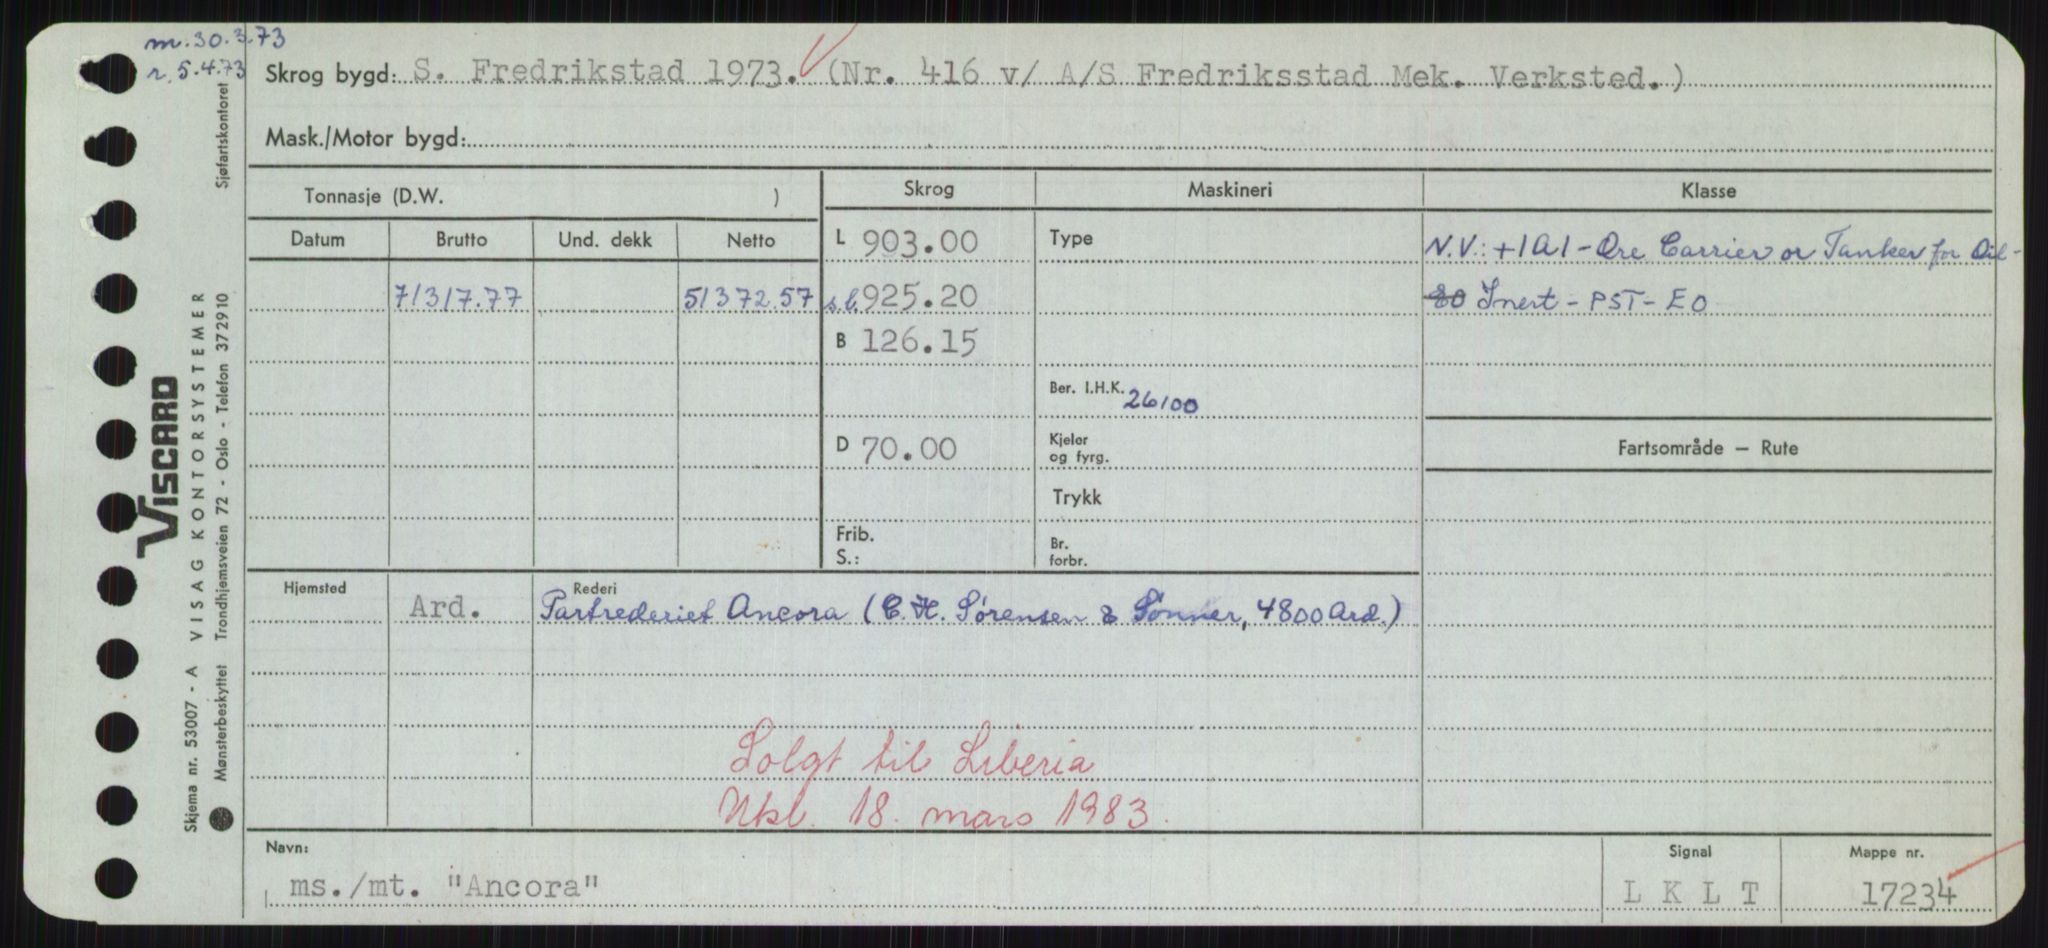 m. 30.3.73
r. 5.4.73
Skrog bygd: S. Fredrikstad 1973. (Nr. 416 v/ A/S Fredriksstad Mek. Verksted.)
Mask./Motor bygd:
Tonnasje (D.W. )
Skrog
Maskineri
Klasse
Datum
Brutto
Und. dekk
Netto
71317.77
51372.57
L 903.00
s.l. 925.20
B 126.15
D 70.00
Frib.
S.:
Type
Ber. I.H.K. 26100
Kjeler
og fyrg.
Trykk
Br.
forbr.
N.V.: +1A1 - Ore Carrier or Tanker for Oil -
EO Inert - PST - EO
Fartsområde – Rute
Hjemsted
Ard.
Rederi
Partrederiet Ancora (C.H. Sørensen & Sønner, 4800 Ard.)
Solgt til Liberia
Nkl. 18. mars 1983.
Navn:
ms./mt. "Ancora"
Signal
L K L T
Mappe nr.
17234
Sjøfartskontoret
VISCARD
Skjema nr. 53007 - A VISAG KONTORSYSTEMER
Mønsterbeskyttet Trondhjemsveien 72 - Oslo - Telefon 372910